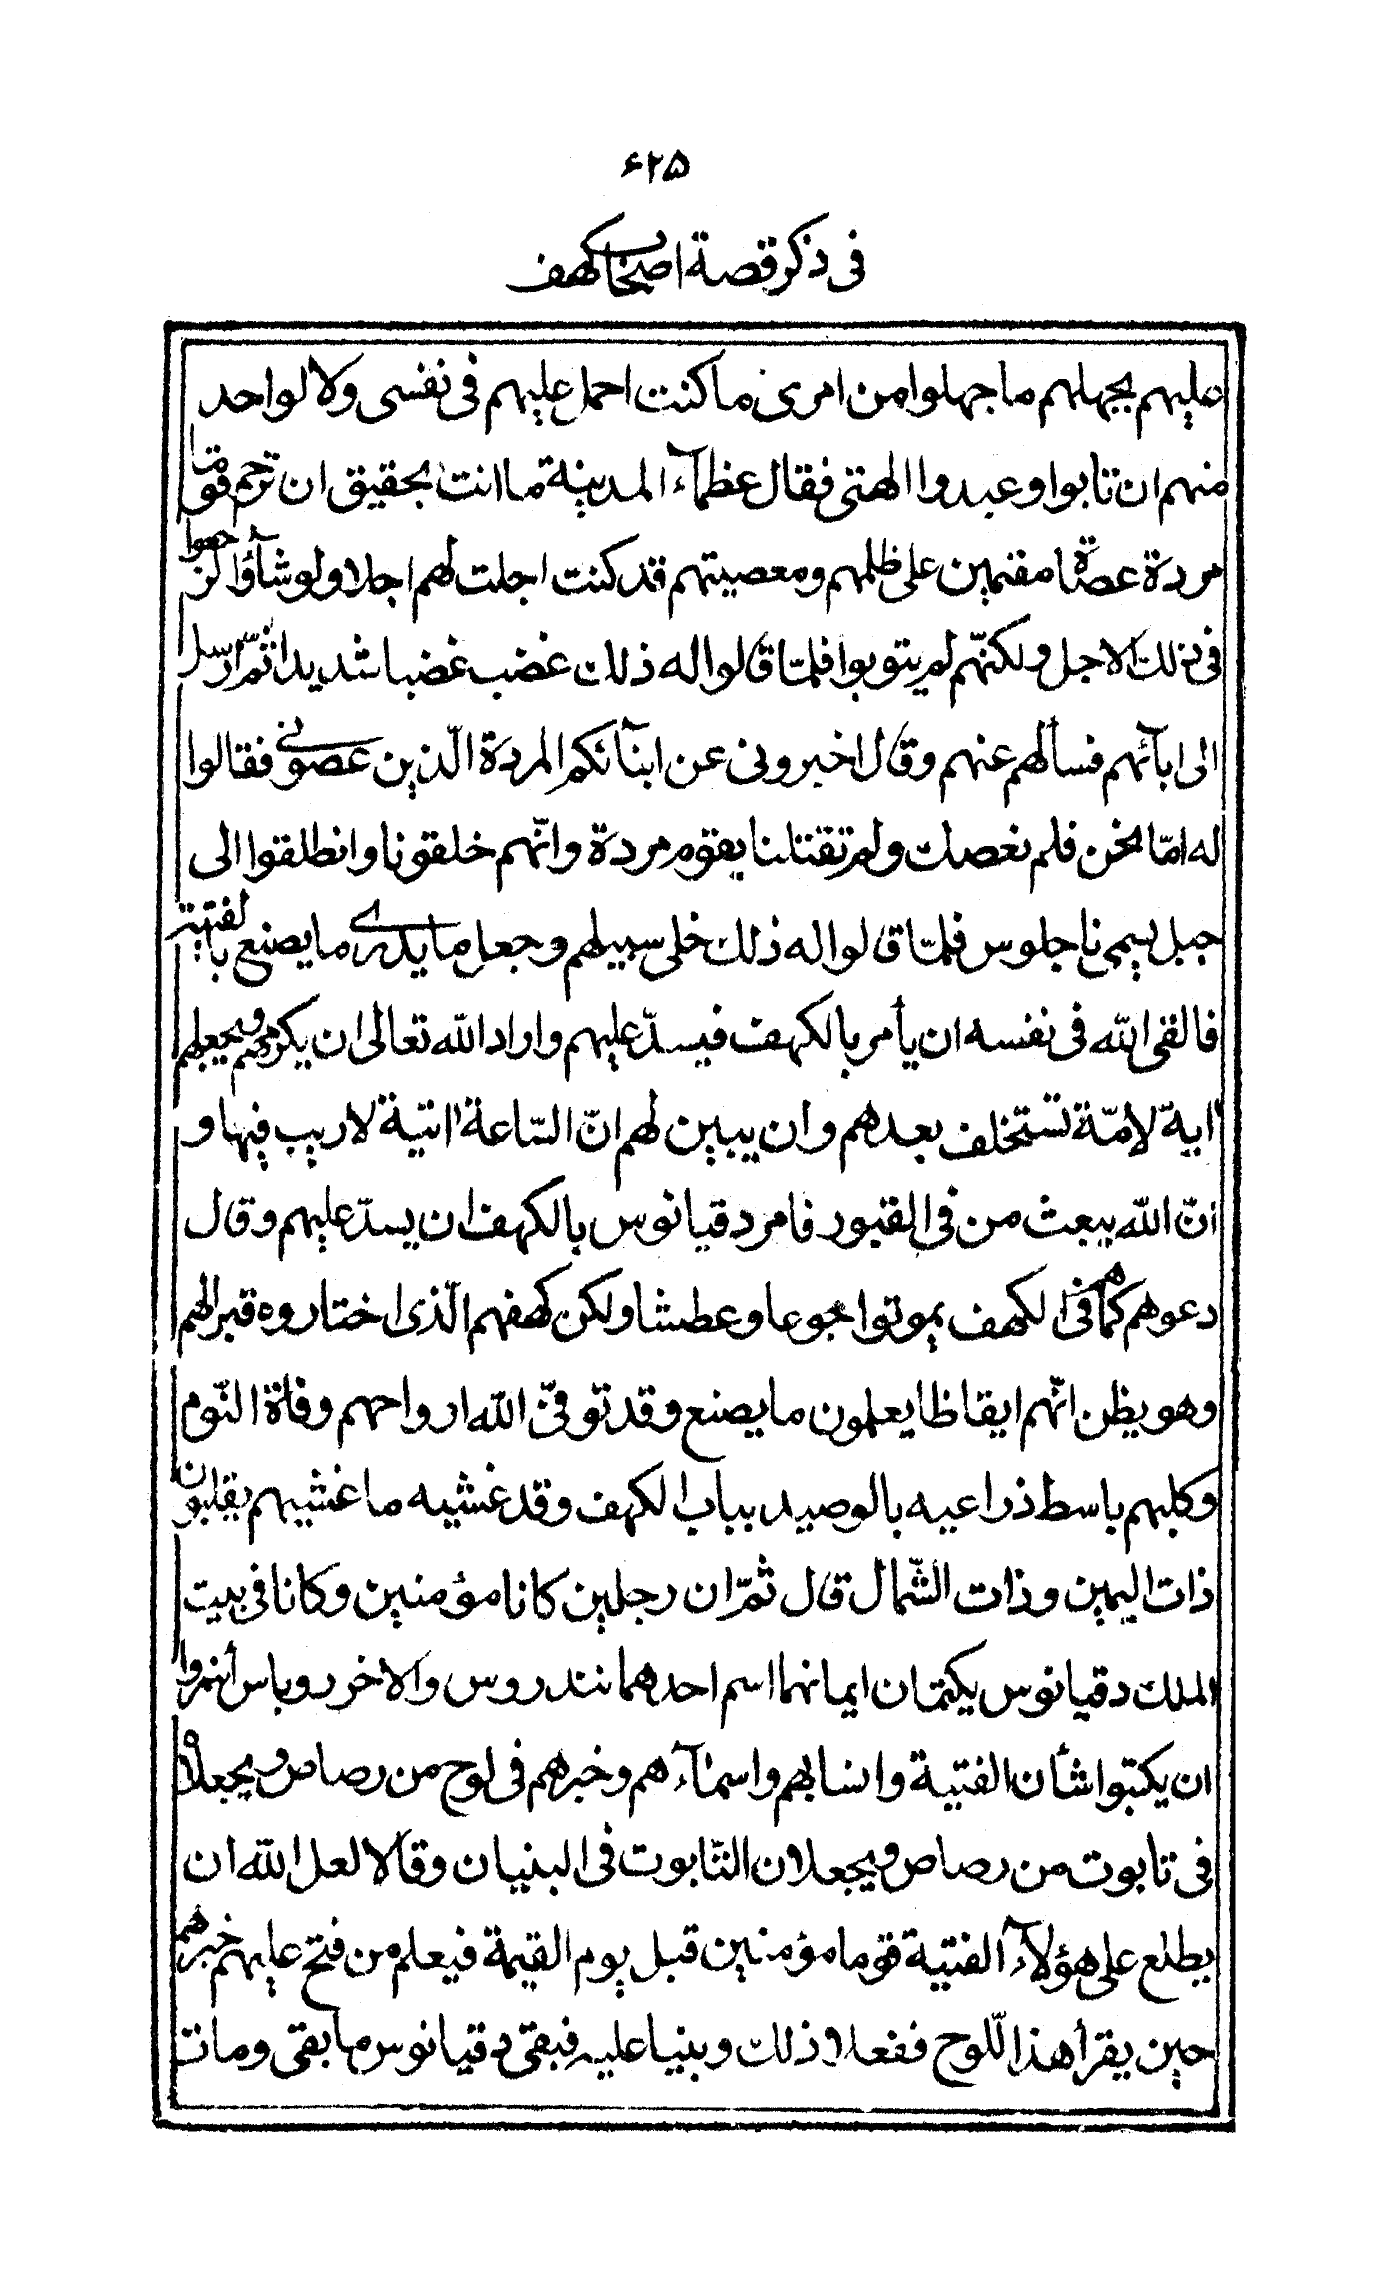 ۶۲۵
فی ذکر قصة اصحاب کهف
علیهم بجهلهم ما جهلوا من امری ما کنت احمل علیهم فی نفسی ولا لواحد
منهم ان تابوا وعبدوا الهتی فقال عظمآء المدینة ما انت بحقیق ان ترحم قوما
مردة عصاة مقیمین علی ظلمهم ومعصیتهم قد کنت اجلت لهم اجلا ولو شآؤا لرجعوا
فی ذلک الاجل ولکنّهم لم یتوبوا فلمّا قالوا له ذلک غضب غضبا شدیدا ثمّ ارسل
الی ابآئهم فسألهم عنهم وقال اخبرونی عن ابنآئکم المردة الّذین عصونی فقالوا
له امّا نحن فلم نعصک ولم تقتلنا بقوم مردة وانّهم خلقونا وانطلقوا الی
جبل یسمی ناجلوس فلمّا قالوا له ذلک خلی سبیلهم وجعل ما یدری ما یصنع بالفتیة
فالقی الله فی نفسه ان یأمر بالکهف فیسدّ علیهم واراد الله تعالی ان یکرمهم ویجعلهم
ایة لامّة تستخلف بعدهم وان یبین لهم انّ السّاعة اتیة لا ریب فیها و
انّ الله یبعث من فی القبور فامر دقیانوس بالکهف ان یسدّ علیهم وقال
دعوهم کما هم فی الکهف یموتوا جوعا وعطشا ولکن کهفهم الّذی اختاروه قبرا لهم
وهو یظن انّهم ایقاظا یعلمون ما یصنع وقد توفیّ الله ارواحهم وفاة النّوم
وکلبهم باسط ذراعیه بالوصید بباب الکهف وقد غشیه ما غشیهم یقلبون
ذات الیمین وذات الشّمال قال ثمّ ان رجلین کانا مؤمنین وکانا فی بیت
الملک دقیانوس یکتمان ایمانهما اسم احدهما نندروس والاخر روباس أئتمروا
ان یکتبوا شأن الفتیة وانسابهم واسمآءهم وخبرهم فی لوح من رصاص ویجعلاه
فی تابوت من رصاص ویجعلان التّابوت فی البنیان وقالا لعل الله ان
یطلع علی هؤلآء الفتیة قوما مؤمنین قبل یوم القیمة فیعلم من فتح علیهم خبرهم
حین یقرأ هذا اللّوح ففعلا ذلک وبنیا علیه فبقی دقیانوس ما بقی ومات